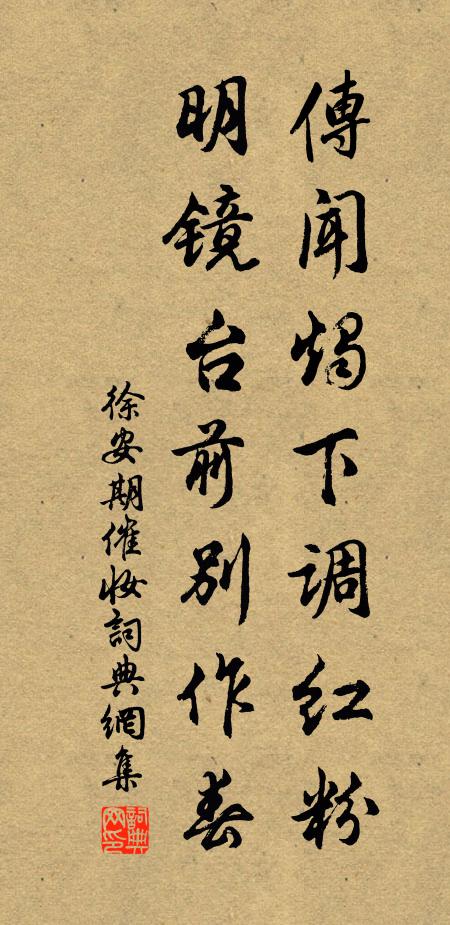 傳聞燭下调红粉
明镜台前别作春
徐安期催妝詞典網集
詞典網印